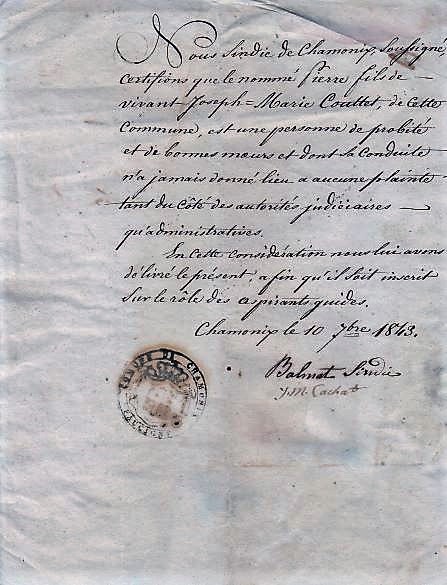 Nous Sindic de Chamonix, Soussigné,
certifions que le nommé Pierre fils de
vivant Joseph=Marie Couttet de cette
Commune, est une personne de probité
et de bonnes mœurs et dont sa Conduite
n'a jamais donné lieu a aucune plainte
tant du Côté des autorités judiciaires
qu'administratives.
En Cette Considération nous lui avons
délivré le présent, afin qu'il soit inscrit
Sur le rôle des aspirants guides.
Chamonix le 10 7bre 1843.
Balmat Sindic
J M Cachat
DE CHAMONIX